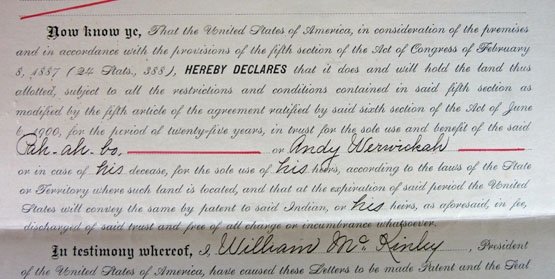 Now know ye, That the United States of America, in consideration of the premises
and in accordance with the provisions of the fifth section of the Act of Congress of February
8, 1887 (24 Stats., 388), HEREBY DECLARES that it does and will hold the land thus
allotted, subject to all the restrictions and conditions contained in said fifth section as
modified by the fifth article of the agreement ratified by said sixth section of the Act of June
6, 1900, for the period of twenty-five years, in trust for the sole use and benefit of the said
Pah-ah-bo, or Andy Werwickah
or in case of his decease, for the sole use of his heirs, according to the laws of the State
or Territory where such land is located, and that at the expiration of said period the United
States will convey the same by patent to said Indian, or his heirs, as aforesaid, in fee,
discharged of said trust and free of all charge or incumbrance whatsoever.
In testimony whereof, I, William McKinley, President
of the United States of America, have caused these Letters to be made Patent and the Seal